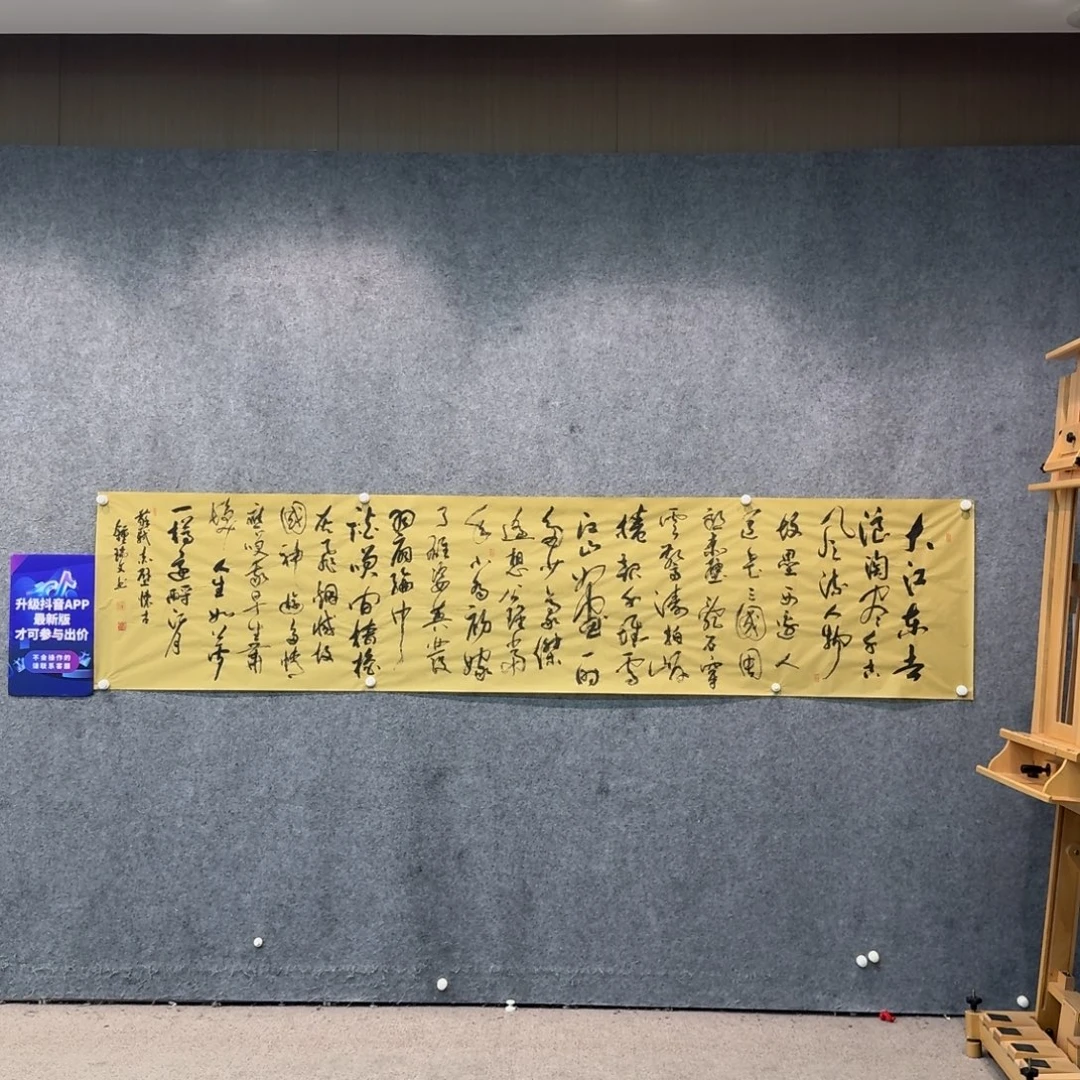 大江东去
浪淘尽千古
风流人物
故垒西边人
道是三国周
郎赤壁乱石穿
云惊涛拍岸
捲起千堆雪
江山如画一时
多少豪傑
遥想公瑾当
年小乔初嫁
了雄姿英发
羽扇纶巾
谈笑间樯橹
灰飞烟灭故
國神游多情
应笑我早生华
发人生如梦
一樽还酹江月
苏轼赤壁怀古
升级抖音APP
最新版
才可参与出价
不会操作的
请联系客服